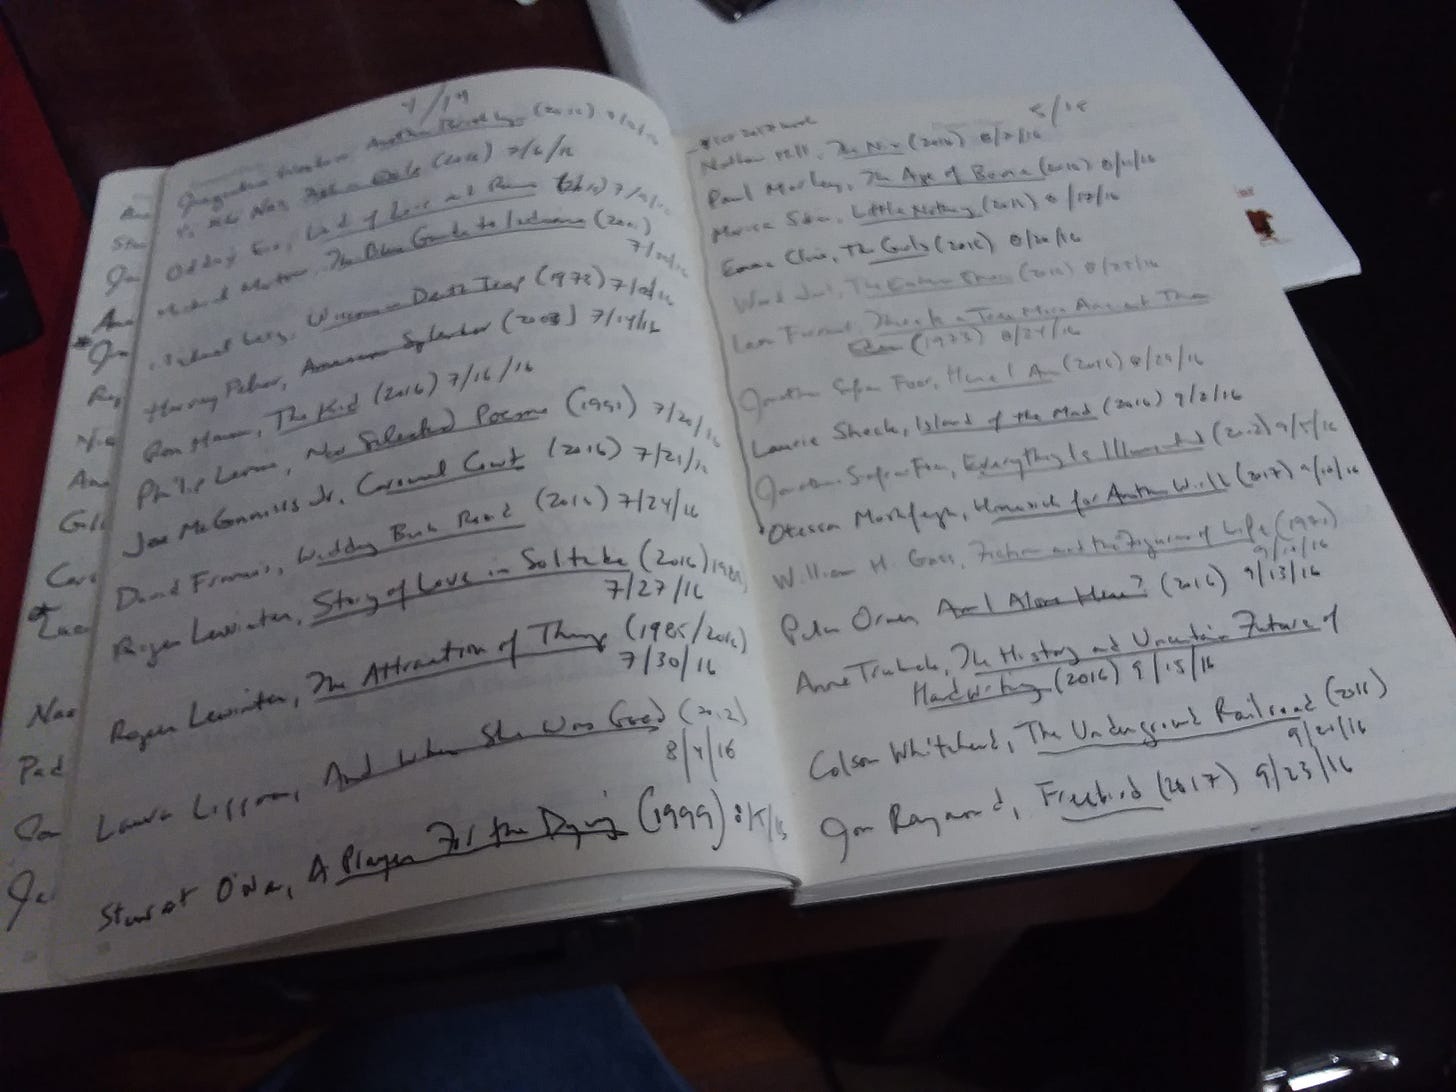 Another Brooklyn (2016)
(2016) 7/6/16
Land of Love and Ruins (2016)
The Blue Guide to Indiana (2001)
Wisconsin Death Trip (1973) 7/12/16
Harvey Pekar, American Splendor (2003) 7/14/16
Ron Hansen, The Kid (2016) 7/16/16
Philip Levine, New Selected Poems (1991) 7/20/16
Joe McGinniss Jr, Carousel Court (2016) 7/21/16
David Francis, Wedding Bush Road (2016) 7/24/16
Roger Lewinter, Story of Love in Solitude (2016)
7/27/16
Roger Lewinter, The Attraction of Things (1985/2016)
7/30/16
Laura Lippman, And When She Was Good (2012)
8/4/16
Stewart O'Nan, A Prayer For the Dying (1999)
Nathan Hill, The Nix (2016) 8/7/16
Paul Morley, The Age of Bowie (2016) 8/11/16
Marisa Silver, Little Nothing (2016) 8/17/16
Emma Cline, The Girls (2016) 8/20/16
Ward Just, The Eastern Shore (2016) 8/25/16
(1973) 8/27/16
Jonathan Safran Foer, Here I Am (2016) 8/29/16
Laurie Sheck, Island of the Mad (2016) 9/2/16
Jonathan Safran Foer, Everything Is Illuminated (2002) 9/5/16
Ottessa Moshfegh, Homesick for Another World (2017) 9/10/16
William H. Gass, Fiction and the Figures of Life (1971)
9/12/16
Peter Orner Am I Alone Here? (2016) 9/13/16
Anne Trubek, The History and Uncertain Future of
Handwriting (2016) 9/15/16
Colson Whitehead, The Underground Railroad (2016)
9/20/16
Jon Raymond, Freebird (2017) 9/23/16